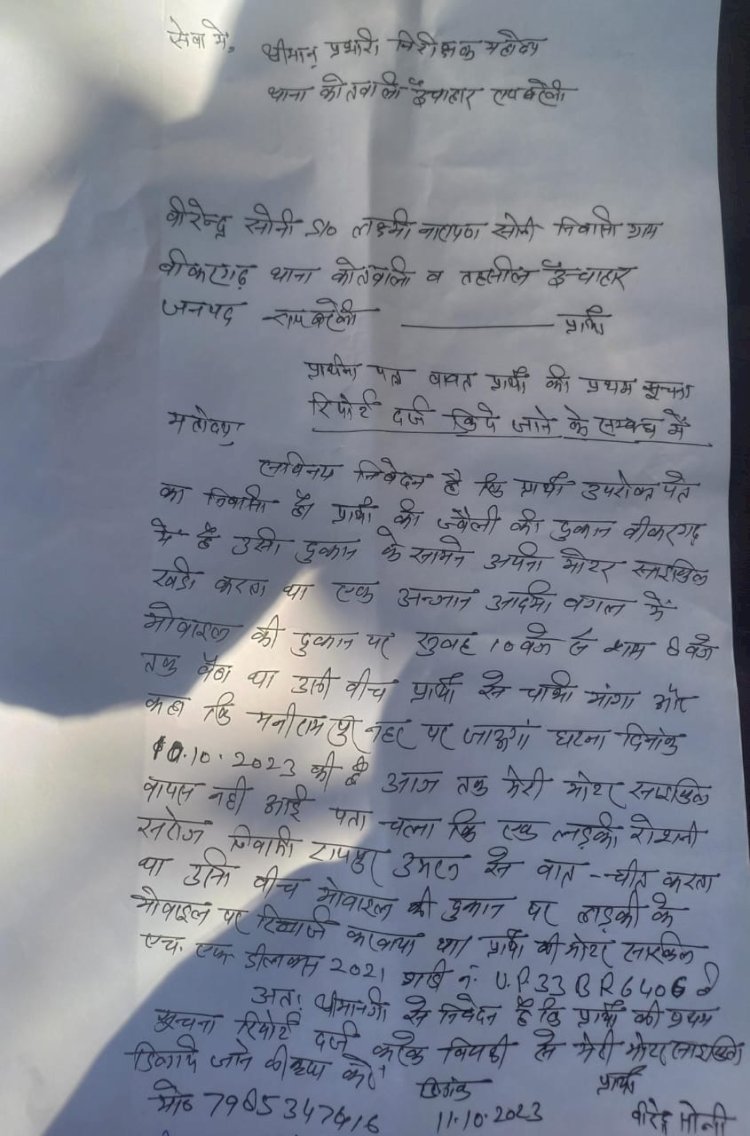 सेवा में,
श्रीमान् प्रभारी निरीक्षक महोदय
थाना कोतवाली ऊँचाहार रायबरेली
वीरेन्द्र सोनी S/o लक्ष्मी नारायण सोनी निवासी ग्राम
वीकरगढ़ थाना कोतवाली व तहसील ऊँचाहार
जनपद रायबरेली ———— प्रार्थी
प्रार्थना पत्र बावत प्रार्थी की प्रथम सूचना
रिपोर्ट दर्ज किये जाने के सम्बन्ध में
महोदय,
सविनय निवेदन है कि प्रार्थी उपरोक्त पते
का निवासी है। प्रार्थी की ज्वैली की दुकान वीकरगढ़
में है उसी दुकान के सामने अपनी मोटर साइकिल
खडी करता था एक अन्जान आदमी बगल में
मोबाइल की दुकान पर सुबह 10 बजे से शाम 6 बजे
तक बैठा था उसी बीच प्रार्थी से चाभी मांगा और
कहा कि मनीरामपुर नहर पर जाऊगां घटना दिनांक
10.10.2023 की है आज तक मेरी मोटर साइकिल
वापस नही आई पता चला कि एक लड़की रोशनी
सरोज निवासी रामपुर से बात-चीत करता
था उसी बीच मोबाइल की दुकान पर लड़की के
मोबाइल पर रिचार्ज करवाया था प्रार्थी की मोटर साइकिल
एच. एफ. डीलक्स 2021 गाडी नं. U.P.33 BR 6406 है
अतः श्रीमानजी से निवेदन है कि प्रार्थी की प्रथम
सूचना रिपोर्ट दर्ज करके विपक्षी से मेरी मोटर साइकिल
दिलाये जाने की कृपा करें
दिनांक प्रार्थी
मो० 11.10.2023 वीरेन्द्र सोनी